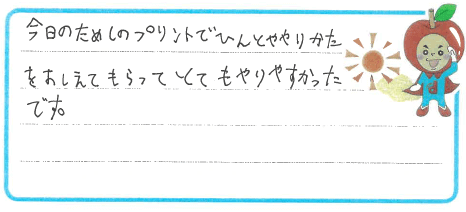 今日のためしのプリントでひんとややりかた
をおしえてもらってとてもやりやすかった
です。